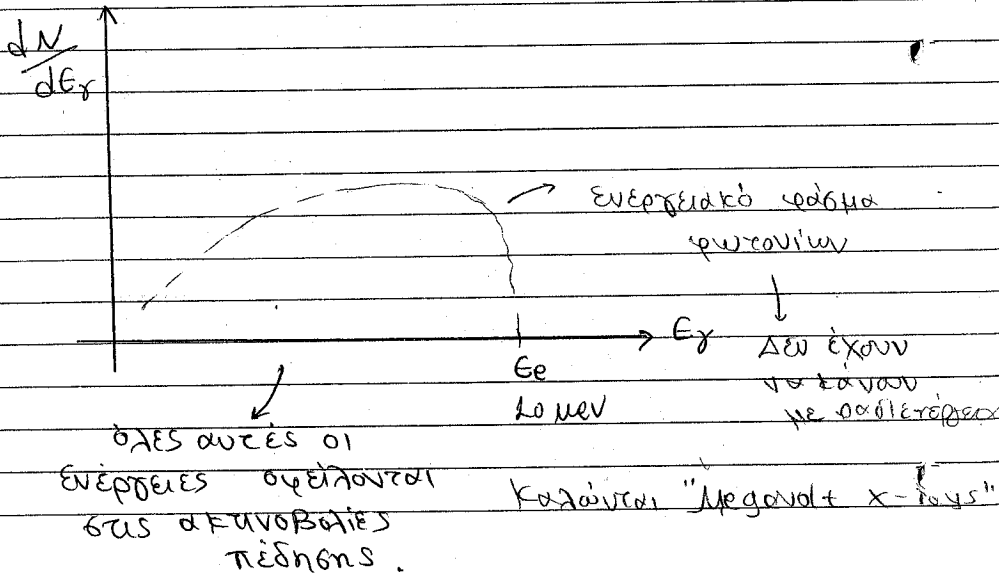 dN
dEγ
ενεργειακό φάσμα
φωτονίων
Εγ
Εe
10 MeV
Δεν έχουν
να κάνουν
με ραδιενέργεια
όλες αυτές οι
ενέργειες οφείλονται
στις ακτινοβολίες
πέδησης.
Καλώνται "Megavolt x-rays"